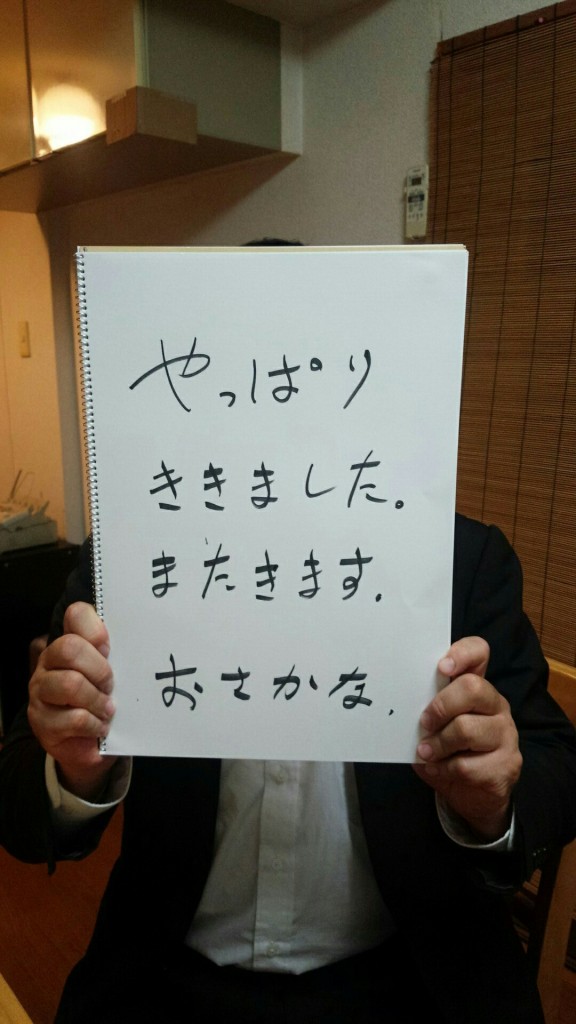 やっぱり
ききました。
またきます。
おさかな、